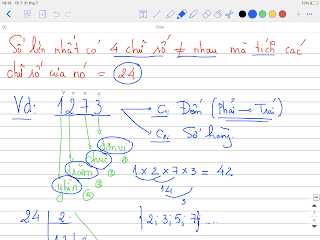 Số lớn nhất có 4 chữ số ≠ nhau mà tích các
chữ số của nó = 24
Vd: 1273
C₁: Đếm (Phải → Trái)
C₂: Số hàng.
đơn vị
chục
trăm
nghìn
1 × 2 × 7 × 3 = 42
14
3
24 | 2
{2; 3; 5; 7} ...